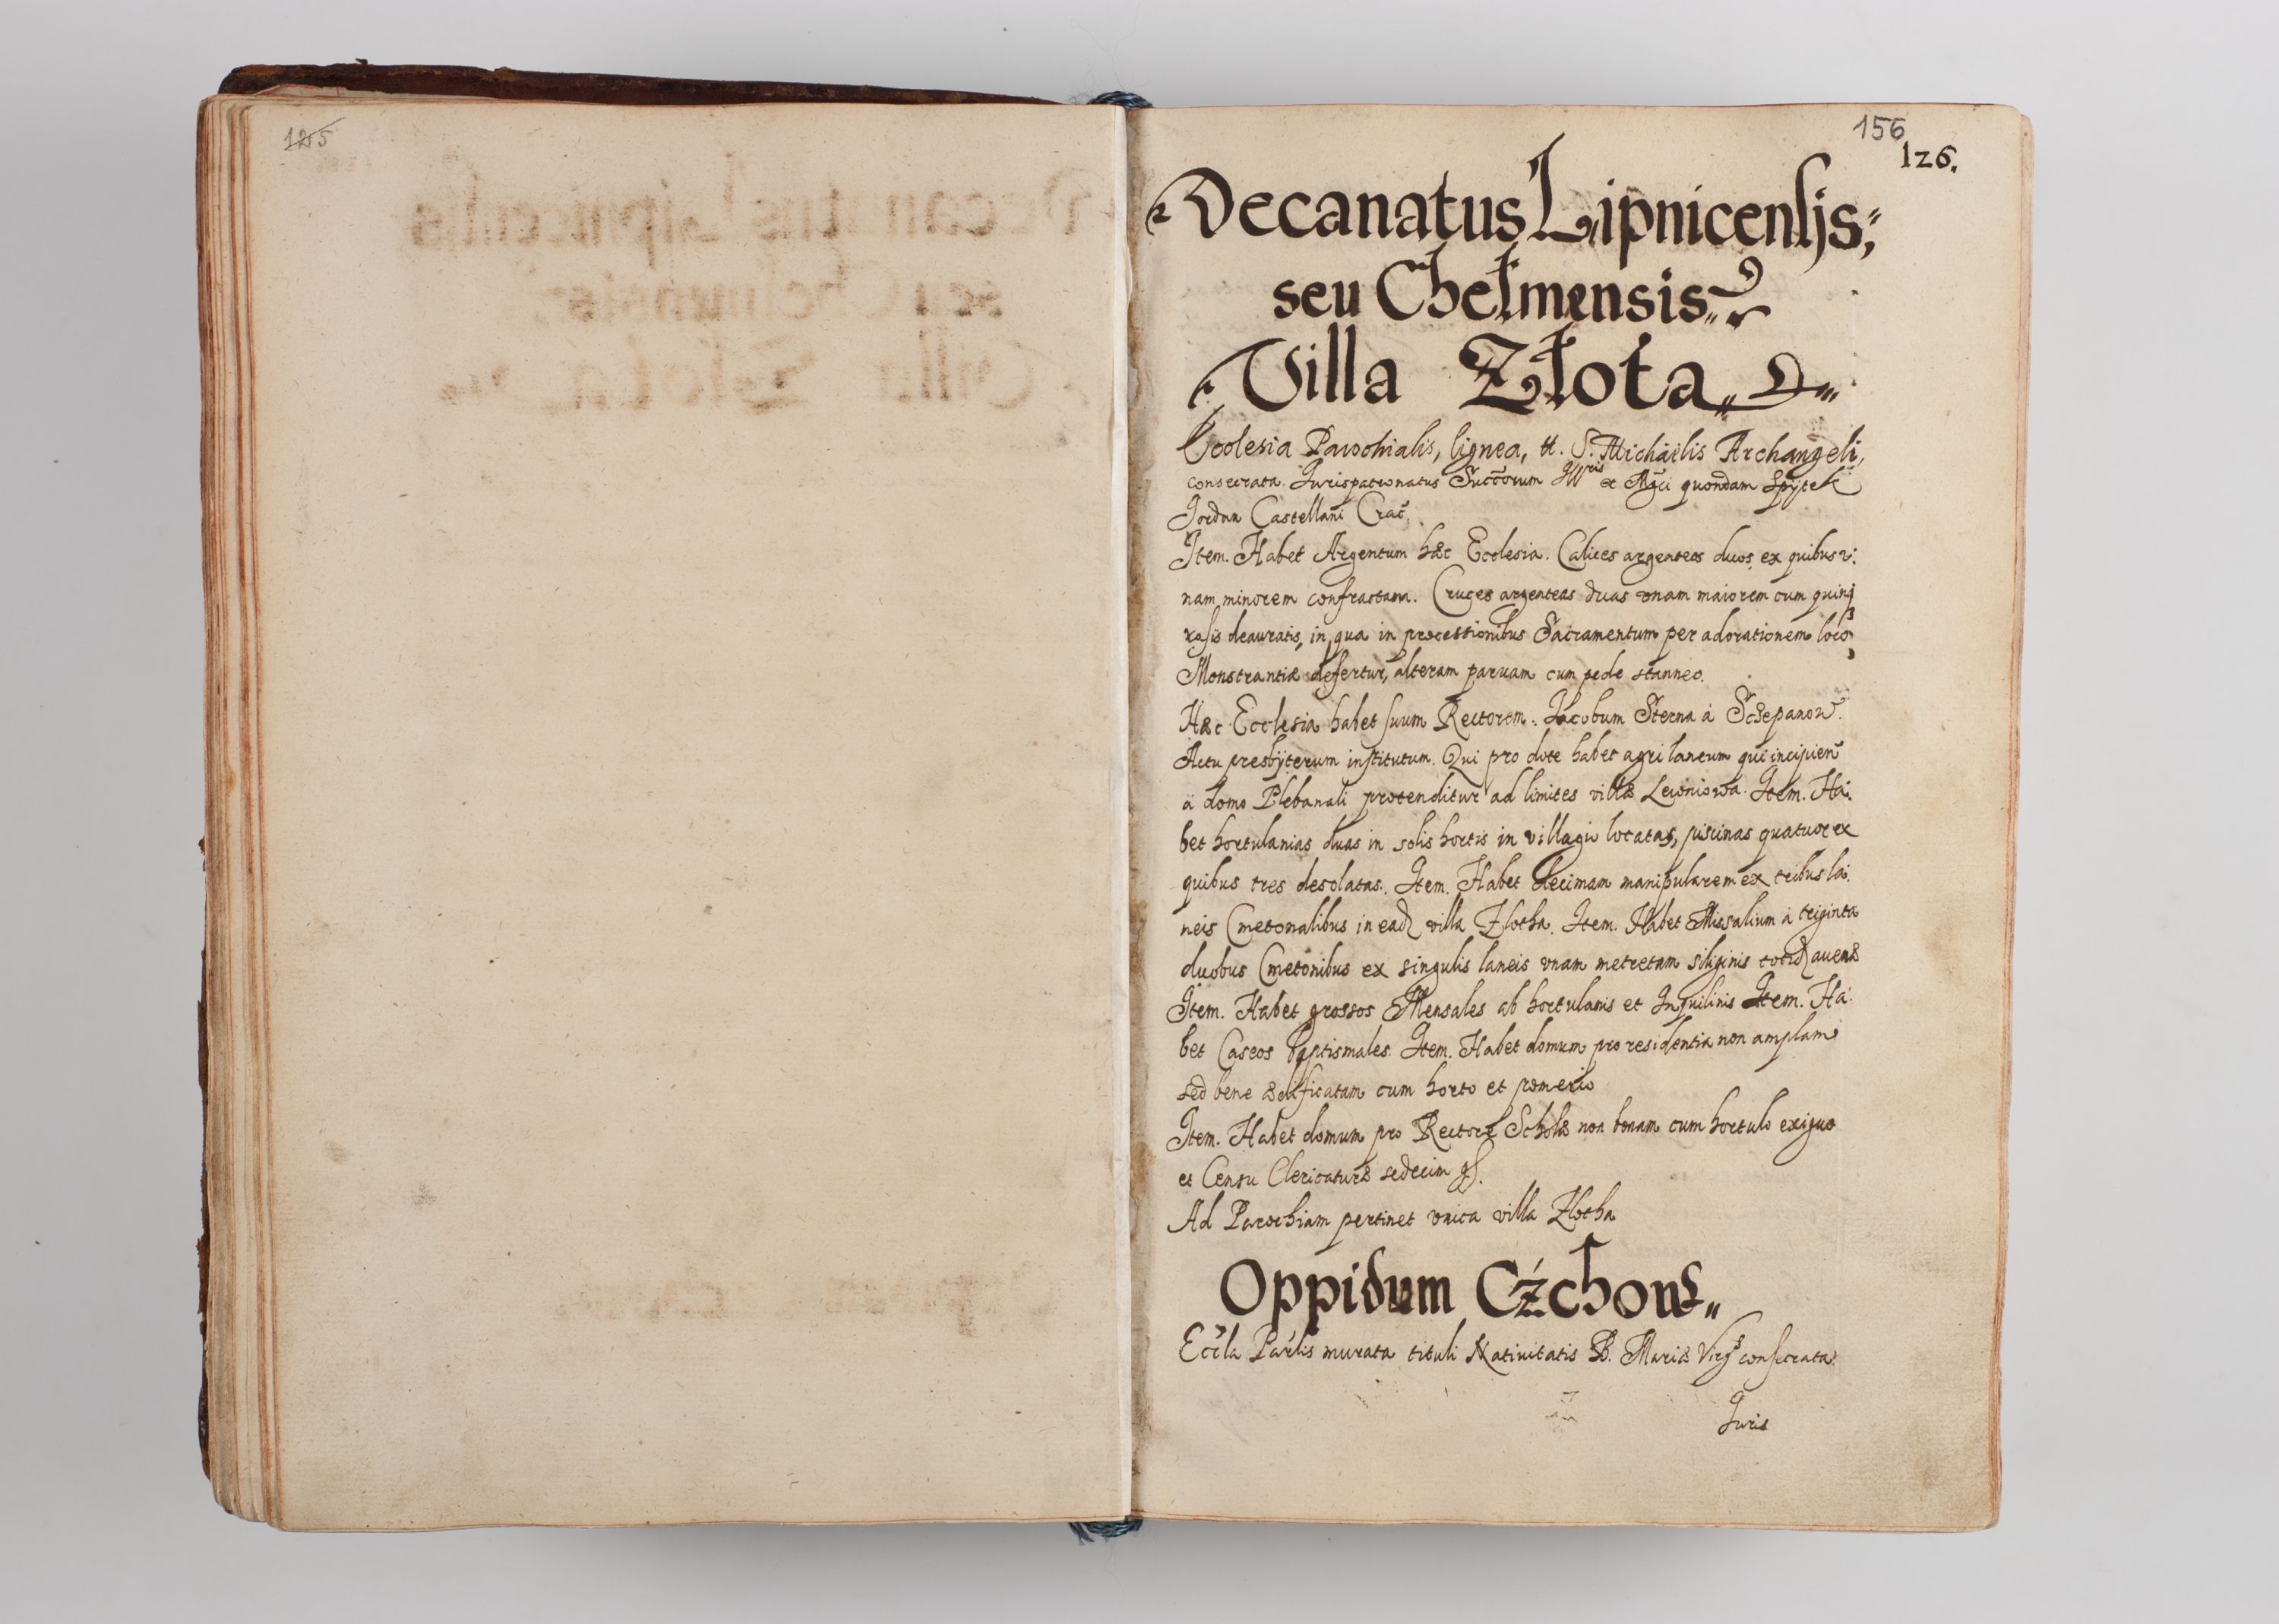 125
156
126.
Decanatus Lipnicensis,
seu Chełmensis
Villa Złota
Ecclesia Parochialis, lignea, tt. S. Michäelis Archangeli,
consecrata. Jurispatronatus Succorum et Mgci quondam Spÿtek
Jordan Castellani Crac.
Item. Habet Argentum hæc Ecclesia. Calices argenteos duos, ex quibus v:
nam minorem confractam. Cruces argenteas duas vnam maiorem cum quinq
rasis deauratis, in qua in processionibus Sacramentum per adorationem loco
Monstrantiæ defertur, alteram paruam cum pede stanneo.
Hæc Ecclesia habet suum Rectorem. Jacobum Sterna à Sczepanow.
Actu presbÿterum institutum. Qui pro dote habet agri laneum qui incipien
à domo Plebanali protenditur ad limites villæ Lewniowa. Item. Ha:
bet hortulanias duas in solis hortis in villagio locatas, piscinas quatuor ex
quibus tres desolatas. Item. Habet decimam manipularem ex tribus la:
neis Cmetonalibus in ead villa Zlotha. Item. Habet Missalium à triginta
duobus Cmetonibus ex singulis laneis vnam metretam siliginis totid auenæ
Item. Habet grossos Mensales ab hortulanis et Inquilinis Item. Ha:
bet Caseos baptismales. Item. Habet domum pro residentia non amplam
sed bene ædificatam cum horto et pomerio
Item. Habet domum pro Rectore Scholæ non bonam cum hortulo exiguo
et Censu Clericaturæ sedecim gs.
Ad Parochiam pertinet vnica villa Zlotha
Oppidum Cźchow
Eccla Parlis murata tituli Natiuitatis B. Mariæ Virgs consecrata.
Juris